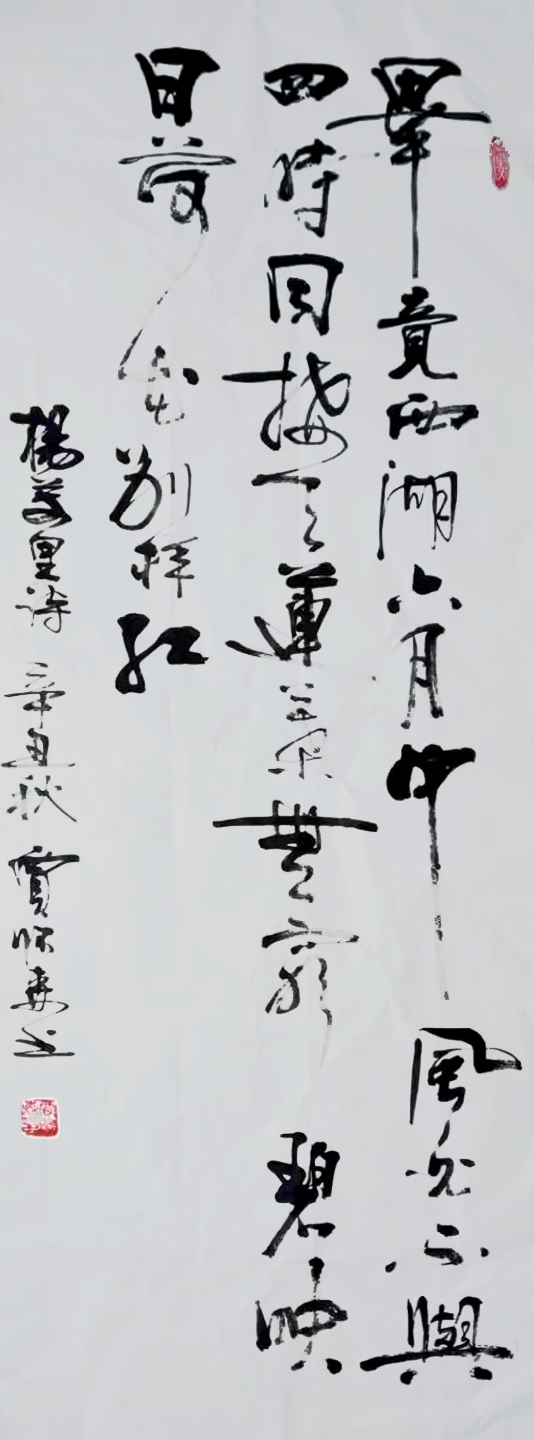 畢竟西湖六月中風光不與
四時同接天蓮葉無窮碧映
日荷花別样紅
楊萬里詩 辛丑秋 賈 書